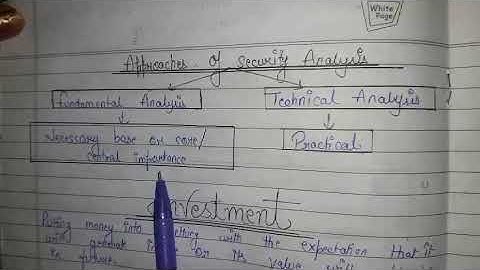 White Page
Approaches of Security Analysis
Fundamental Analysis
Technical Analysis
Necessary base or core/
central importance
Practical
Investment
Putting money into something with the expectation that it
will generate or its value will
in future.